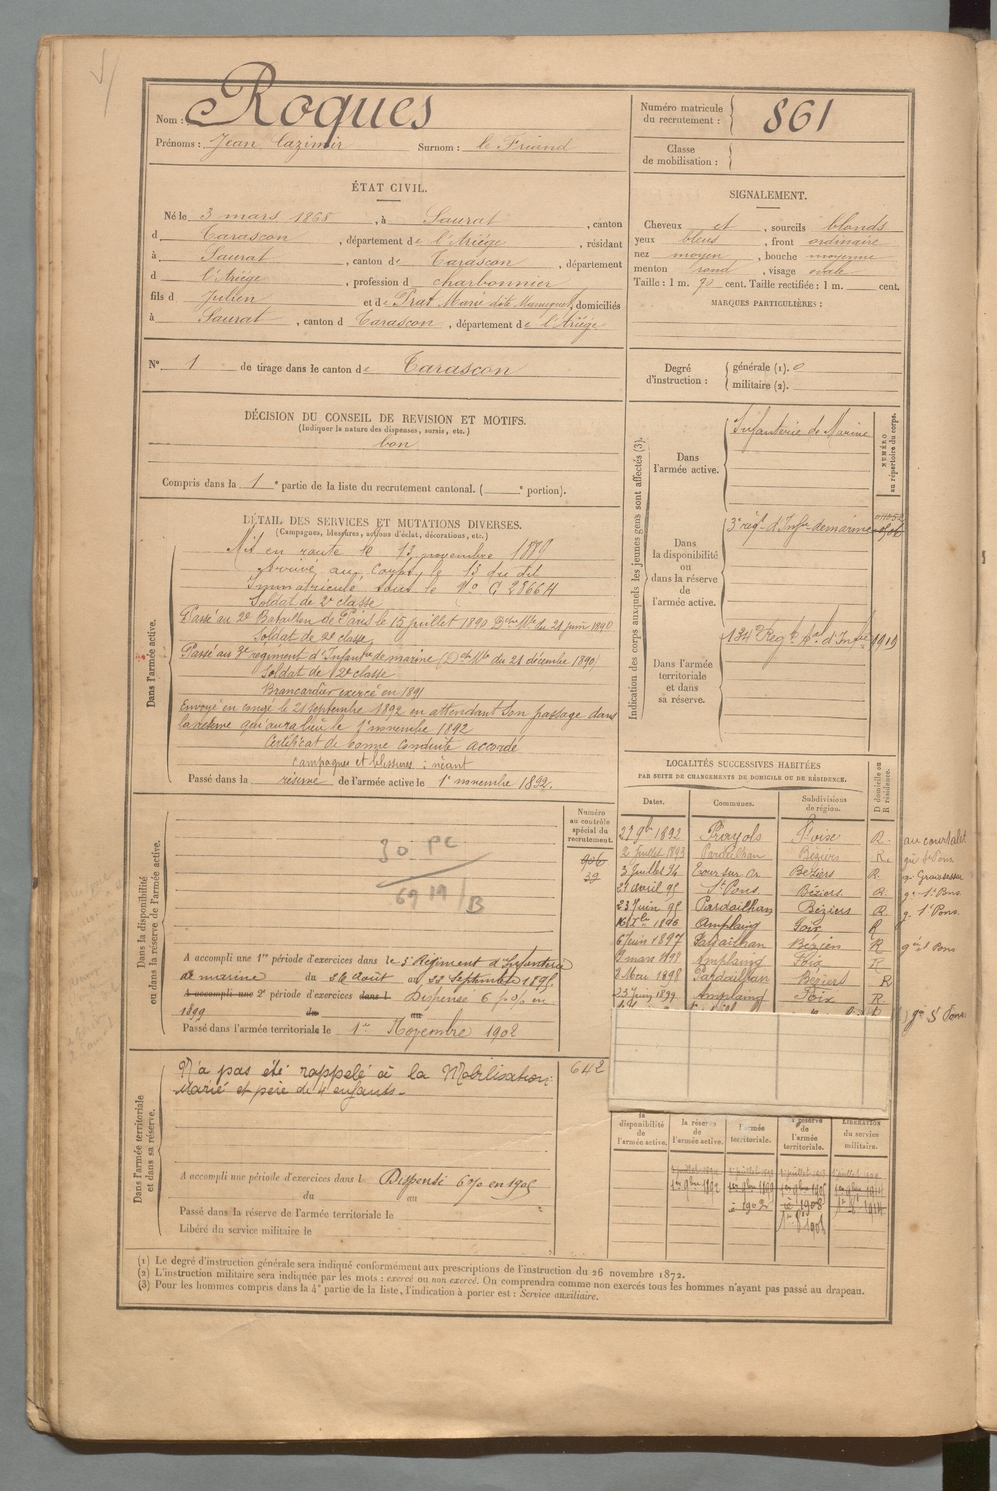 Nom : Roques
Prénoms : Jean Cazimir Surnom : le Friand
Numéro matricule du recrutement : 861
Classe de mobilisation :
ÉTAT CIVIL.
Né le 3 mars 1868, à Saurat, canton
d Tarascon, département de l'Ariége, résidant
à Saurat, canton de Tarascon, département
d l'Ariége, profession d charbonnier
fils d Julien et de Prat Marie dite, domiciliés
à Saurat, canton d Tarascon, département de l'Ariége
SIGNALEMENT.
Cheveux et, sourcils blonds
yeux bleus, front ordinaire
nez moyen, bouche moyenne
menton rond, visage ovale
Taille : 1 m. 70 cent. Taille rectifiée : 1 m. cent.
MARQUES PARTICULIÈRES :
N° 1 de tirage dans le canton de Tarascon
Degré d'instruction : générale (1). 0
militaire (2).
DÉCISION DU CONSEIL DE REVISION ET MOTIFS.
(Indiquer la nature des dispenses, sursis, etc.)
bon
Compris dans la 1e partie de la liste du recrutement cantonal. ( e portion).
DÉTAIL DES SERVICES ET MUTATIONS DIVERSES.
(Campagnes, blessures, actions d'éclat, décorations, etc.)
Dans l'armée active.
Mis en route le 13 novembre 1889
Arrivé au Corps le 13 du dit
Immatriculé sous le No G 2866H
Soldat de 2e classe
Passé au 2e Bataillon de Paris le 15 juillet 1890 Dchu Mlle du 21 juin 1890
Soldat de 2e classe
Passé au 3e régiment d'Infantrie de marine (Dch Mlle du 21 décembre 1890)
Soldat de 2e classe
Brancardier exercé en 1891
Envoyé en congé le 21 septembre 1892 en attendant son passage dans
la réserve qui aura lieu le 1er novembre 1892
Certificat de bonne conduite accordé
Campagnes et blessures : néant
Passé dans la réserve de l'armée active le 1er novembre 1892.
Indication des corps auxquels les jeunes gens sont affectés (3).
NUMÉRO au répertoire du corps.
Dans l'armée active.
Infanterie de Marine
Dans la disponibilité ou dans la réserve de l'armée active.
3e régt d'Infrie de marine
Dans l'armée territoriale et dans sa réserve.
134 Régt d'Infie 1919
LOCALITÉS SUCCESSIVES HABITÉES
PAR SUITE DE CHANGEMENTS DE DOMICILE OU DE RÉSIDENCE.
D domicile ou R résidence.
Dates. Communes. Subdivisions de région.
27 9bre 1892 R. au courtalet
2 juillet 1893 Pardailhan Béziers R. St Pons
3 juillet 94 Béziers R.
21 avril 95 St Pons Béziers R. St Pons.
23 juin 95 Pardailhan Béziers R. St Pons.
1896 Amplaing Foix R
6 juin 1897 Pardailhan Béziers R St Pons
2 mars 1898 Amplaing Foix R
3 Mai 1898 Pardailhan Béziers R
23 juin 1899 Amplaing Foix R
St Pons
Dans la disponibilité ou dans la réserve de l'armée active.
Numéro au contrôle spécial du recrutement.
906
39
30 PC
69 19/B
A accompli une 1re période d'exercices dans le 3e Régiment d'Infanterie
de marine du 26 Août au 22 Septembre 1895.
A accompli une 2e période d'exercices dans l Dispensé 6 p% en
1899 du au
Passé dans l'armée territoriale le 1er Novembre 1902
Dans l'armée territoriale et dans sa réserve.
N'a pas été rappelé à la Mobilisation.
Marié et père de 4 enfants.
642
A accompli une période d'exercices dans l Dispensé 6 o/o en 1905
du au
Passé dans la réserve de l'armée territoriale le
Libéré du service militaire le
la disponibilité de l'armée active.
la réserve de l'armée active.
l'armée territoriale.
la réserve de l'armée territoriale.
LIBÉRATION du service militaire.
1er 9bre 1892 1er 9bre 1899
(1) Le degré d'instruction générale sera indiqué conformément aux prescriptions de l'instruction du 26 novembre 1872.
(2) L'instruction militaire sera indiquée par les mots : exercé ou non exercé. On comprendra comme non exercés tous les hommes n'ayant pas passé au drapeau.
(3) Pour les hommes compris dans la 4e partie de la liste, l'indication à porter est : Service auxiliaire.